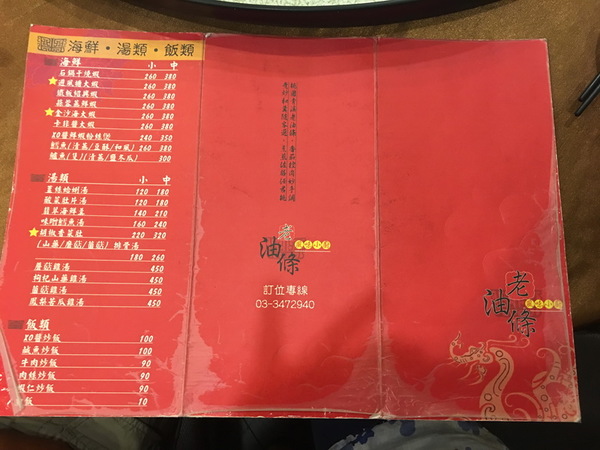 海鮮・湯類・飯類
海鮮 小 中
石鍋干燒蝦 260 380
避風塘大蝦 260 380
鐵板紹興蝦 260 380
蒜蓉蒸鮮蝦 260 380
金沙海大蝦 260 380
卡拉醬大蝦 260 380
XO醬鮮蝦粉絲煲 240 350
鱈魚(清蒸/豆酥/和風) 260 380
鱸魚(煲)(清蒸/鹽冬瓜) 300
湯類 小 中
薑絲蛤蜊湯 120 180
酸菜肚片湯 120 180
翡翠海鮮羹 140 210
味噌鱈魚湯 160 240
胡椒香菜肚 220 320
(山藥/蘑菇/薑菇) 排骨湯
180 260
蘑菇雞湯 450
枸杞山藥雞湯 450
薑菇雞湯 450
鳳梨苦瓜雞湯 450
飯類
XO醬炒飯 100
鹹魚炒飯 100
牛肉炒飯 90
肉絲炒飯 90
蝦仁炒飯 90
飯 10
老油條
風味小館
訂位專線
03-3472940
老油條
風味小館